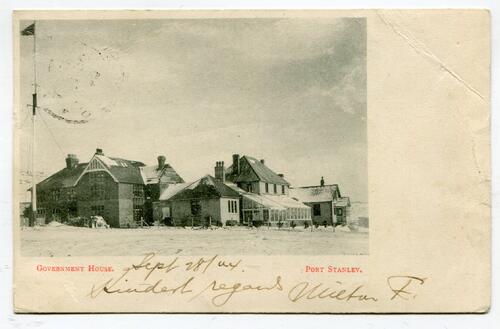 GOVERNMENT HOUSE.
PORT STANLEY.
Sept 28/04
Kindest regards Milton F.